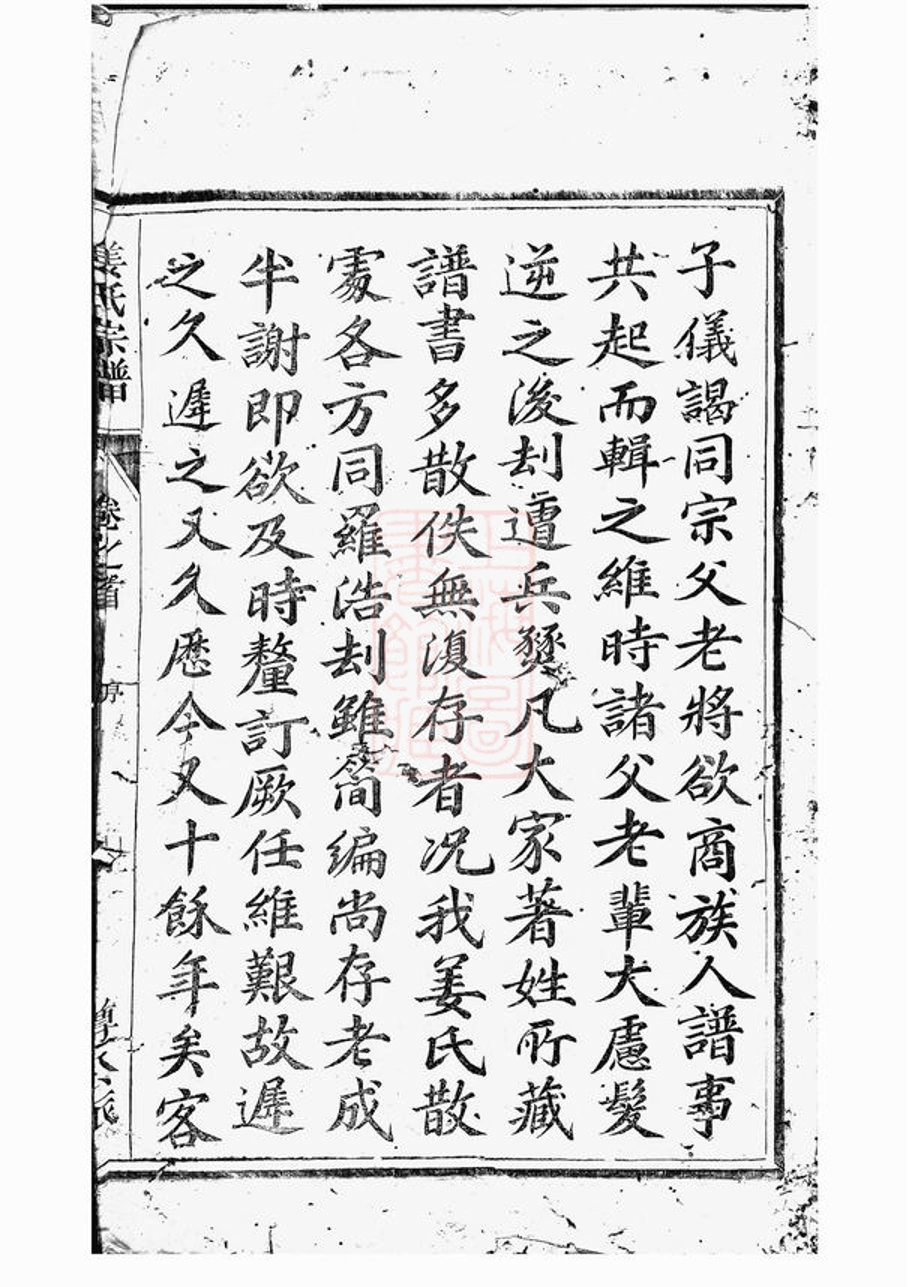 子儀謁同宗父老將欲商族人譜事
共起而輯之維時諸父老輩大慮髮
逆之後刦遭兵燹凡大家著姓所藏
譜書多散佚無復存者况我姜氏散
處各方同羅浩刦雖簡編尚存老成
半謝即欲及時釐訂厥任維艱故遲
之久遲之又久歷今又十餘年矣客
姜氏宗譜
卷之首
序